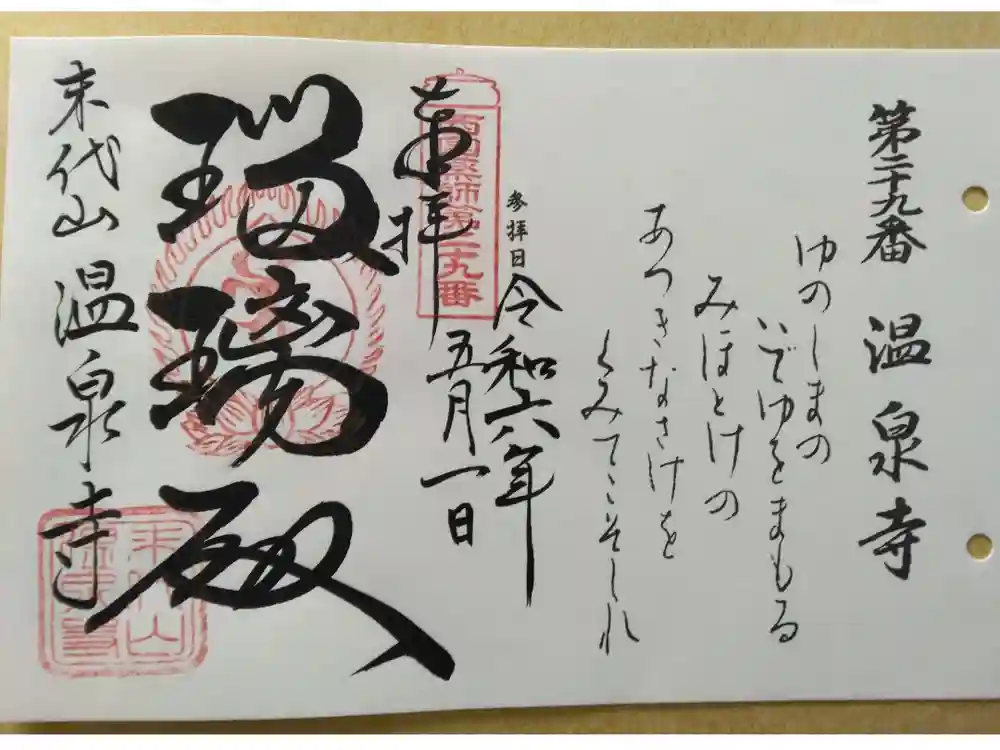 第二十九番 温泉寺
ゆのしまの
いでゆをまもる
みほとけの
あつきなさけを
くみてこそしれ
参拝日 令和六年
五月一日
奉拝
西国薬師第二十九番
瑠璃殿
末代山 温泉寺
末代山
温泉寺